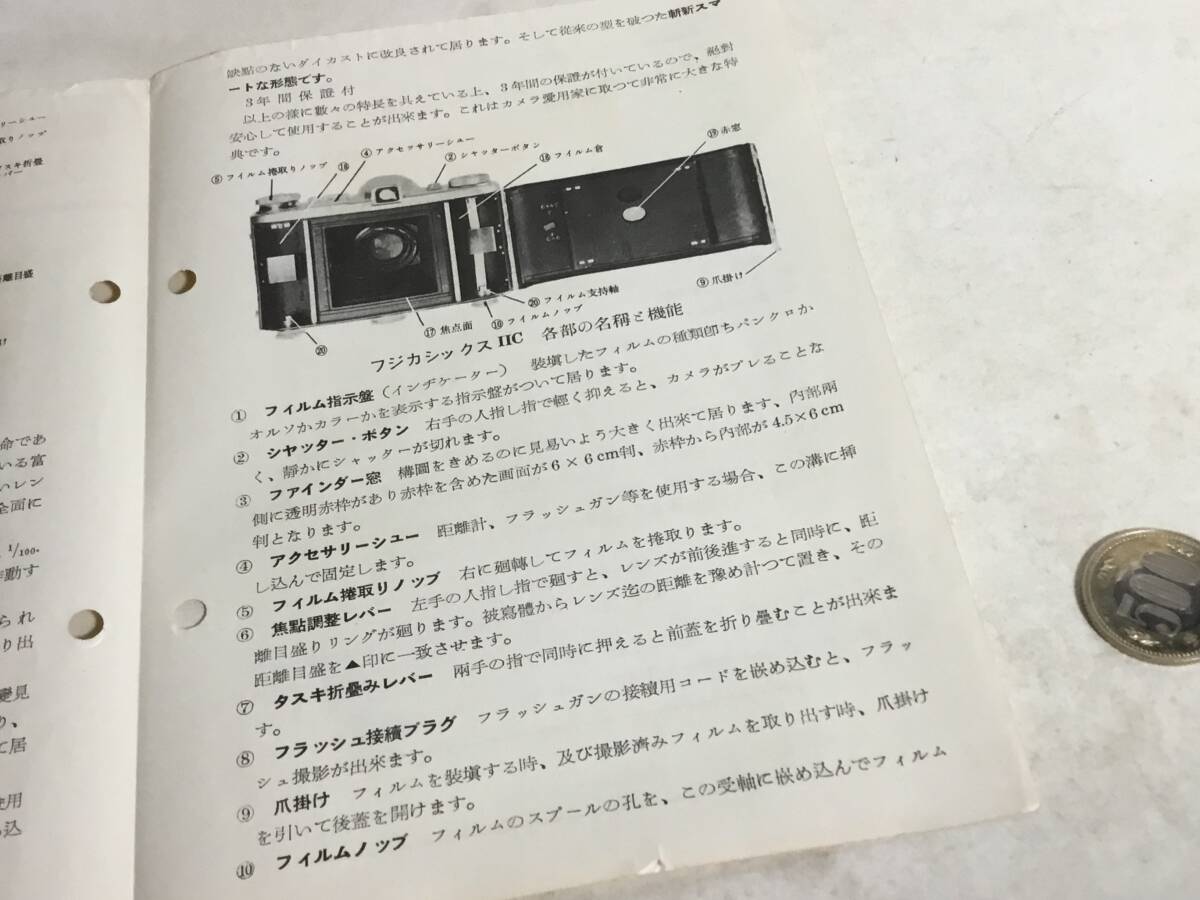 リーシュー
取りノップ
スキ折疊
バー
離目盛
け
命であ
いる富
いレン
全面に
1/100.
作動す
られ
り出
變見
り、
て居
使用
込
缺點のないダイカストに改良されて居ります。そして從来の型を破つた斬新スマ
ートな形態です。
3年間保證付
以上の樣に數々の特長を具えている上、3年間の保證が付いているので、絕對
安心して使用することが出來ます。これはカメラ愛用家に取つて非常に大きな特
典です。
⑤フイルム捲取りノップ
⑱
④アクセッサリーシュー
②シャッターボタン
⑱フイルム倉
⑲赤窓
⑨爪掛け
⑳フイルム支持軸
⑩フイルムノップ
⑰焦点面
⑳
フジカシックスIIC 各部の名稱と機能
① フィルム指示盤(インヂケーター) 裝塡したフィルムの種類卽ちパンクロか
オルソかカラーかを表示する指示盤がついて居ります。
② シヤッター・ボタン 右手の人指し指で輕く抑えると、カメラがブレることな
く、靜かにシャッターが切れます。
③ ファインダー窓 構圖をきめるのに見易いよう大きく出來て居ります、内部兩
側に透明赤枠があり赤枠を含めた画面が6×6cm判、赤枠から内部が4.5×6cm
判となります。
④ アクセサリーシュー 距離計、フラッシュガン等を使用する場合、この溝に挿
し込んで固定します。
⑤ フィルム捲取りノップ 右に廻轉してフィルムを捲取ります。
⑥ 焦點調整レバー 左手の人指し指で廻すと、レンズが前後進すると同時に、距
離目盛りリングが廻ります。被寫體からレンズ迄の距離を豫め計つて置き、その
距離目盛を▲印に一致させます。
⑦ タスキ折疊みレバー 兩手の指で同時に押えると前蓋を折り疊むことが出來ま
す。
⑧ フラッシュ接續プラグ フラッシュガンの接續用コードを嵌め込むと、フラッ
シュ撮影が出來ます。
⑨ 爪掛け フィルムを裝塡する時、及び撮影濟みフィルムを取り出す時、爪掛け
を引いて後蓋を開けます。
⑩ フィルムノップ フィルムのスプールの孔を、この受軸に嵌め込んでフィルム
500